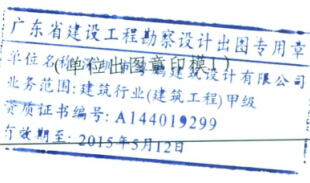 广东省建设工程勘察设计出图专用章
单位名称:深圳市 建筑设计有限公司
(单位出图章印模1)
业务范围:建筑行业(建筑工程)甲级
资质证书编号:A144019299
有效期至:2015年5月12日